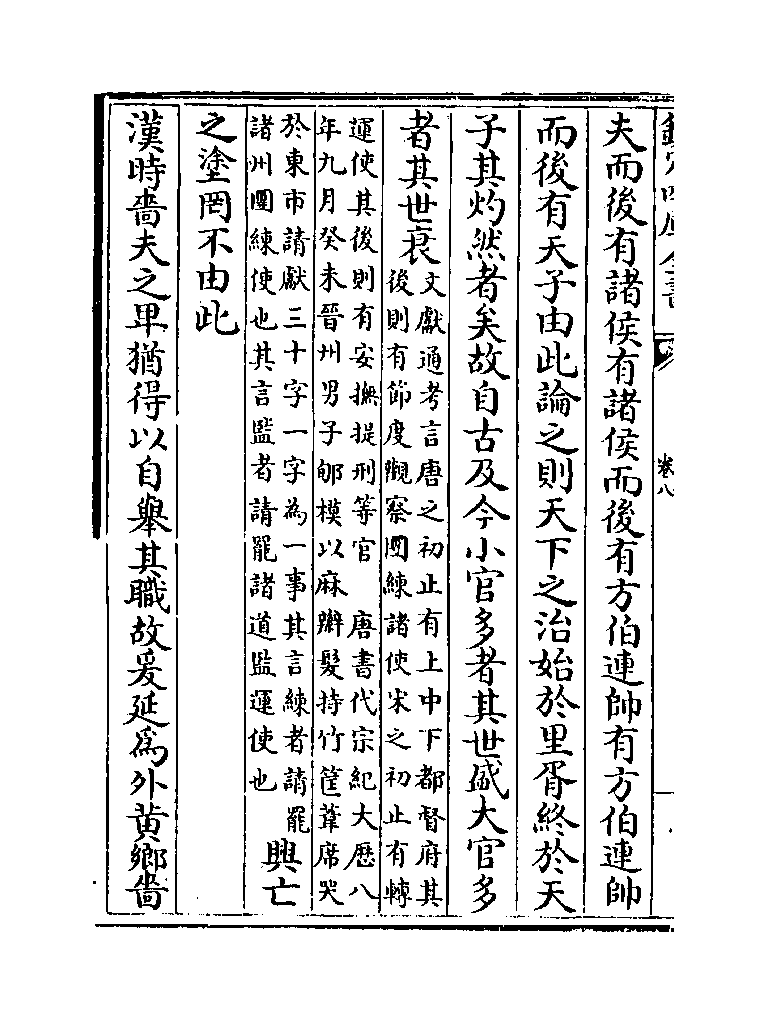 欽定四庫全書
卷八
夫而後有諸侯有諸侯而後有方伯連帥有方伯連帥
而後有天子由此論之則天下之治始於里胥終於天
子其灼然者矣故自古及今小官多者其世盛大官多
者其世衰
文獻通考言唐之初止有上中下都督府其
後則有節度觀察團練諸使宋之初止有轉
運使其後則有安撫提刑等官 唐書代宗紀大厯八
年九月癸未晉州男子郇模以麻辮髮持竹筐葦席哭
於東市請獻三十字一字為一事其言練者請罷
諸州團練使也其言監者請罷諸道監運使也
興亡
之塗罔不由此
漢時嗇夫之卑猶得以自舉其職故爰延為外黄鄉嗇